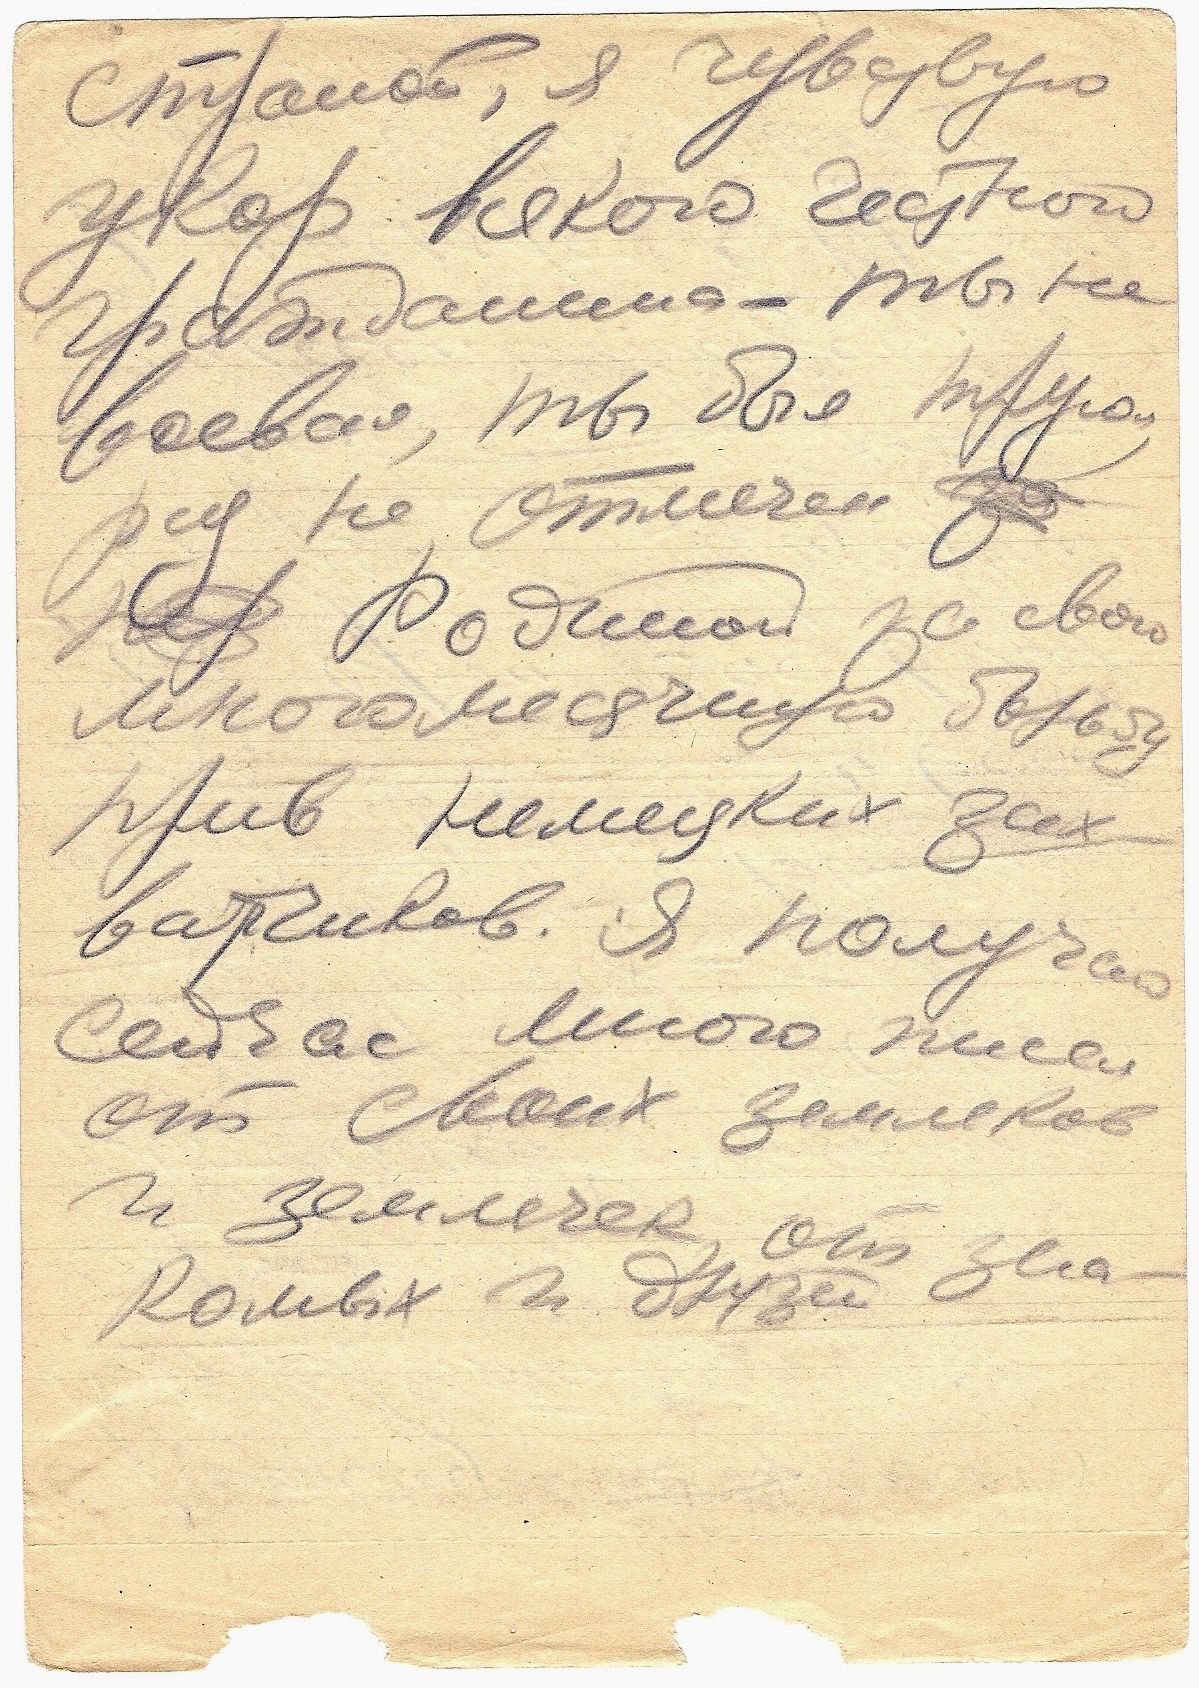 страной, я чувствую
укор всякого честного
гражданина – ты не
воевал, ты был трусом,
раз не отмечен
Родиной за свою
многомесячную борьбу
прив немецких зах-
ватчиков. Я получаю
сейчас много писем
от своих земляков
и землячек, от зна-
комых и друзей